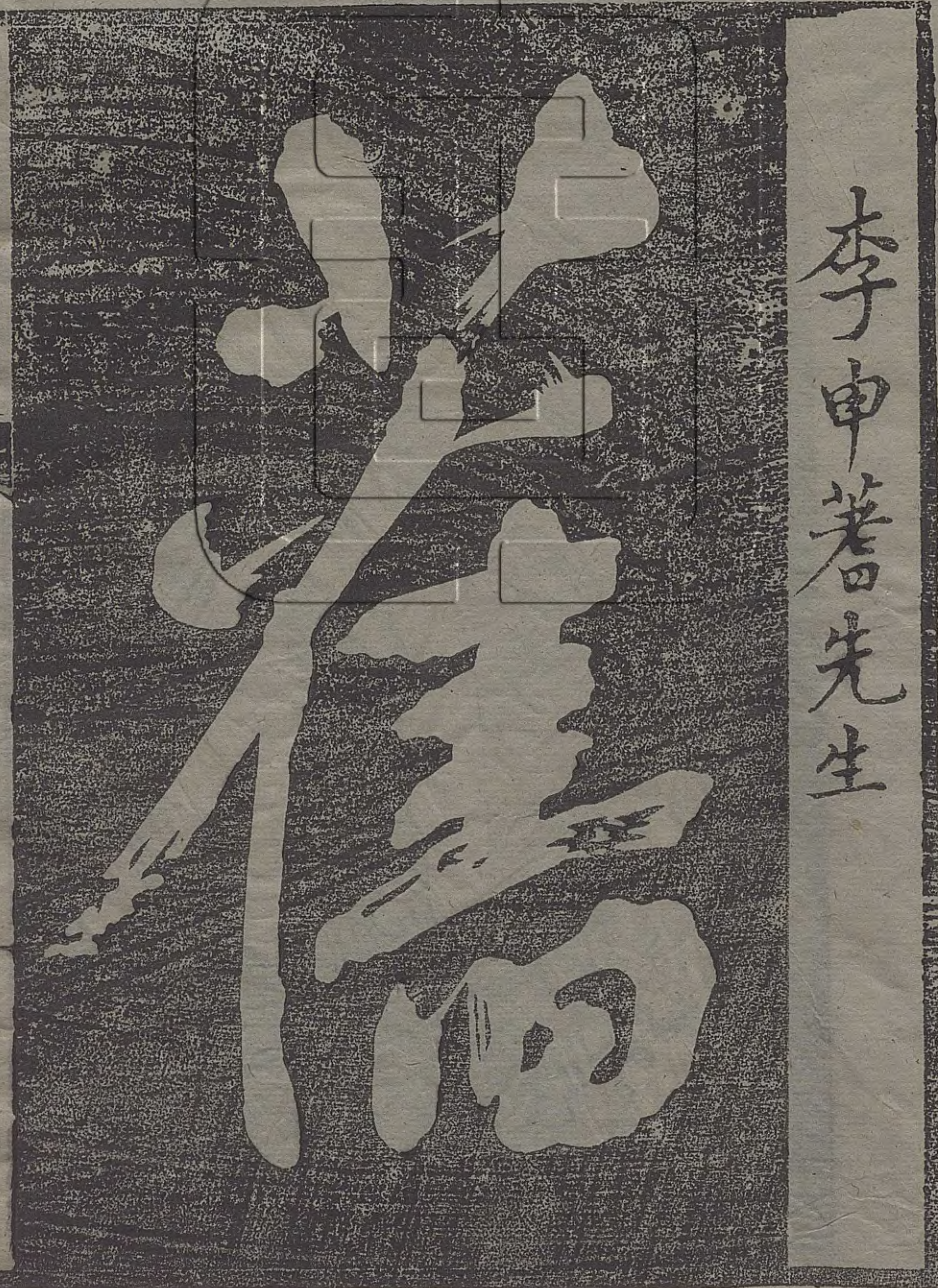 李申耆先生
舊